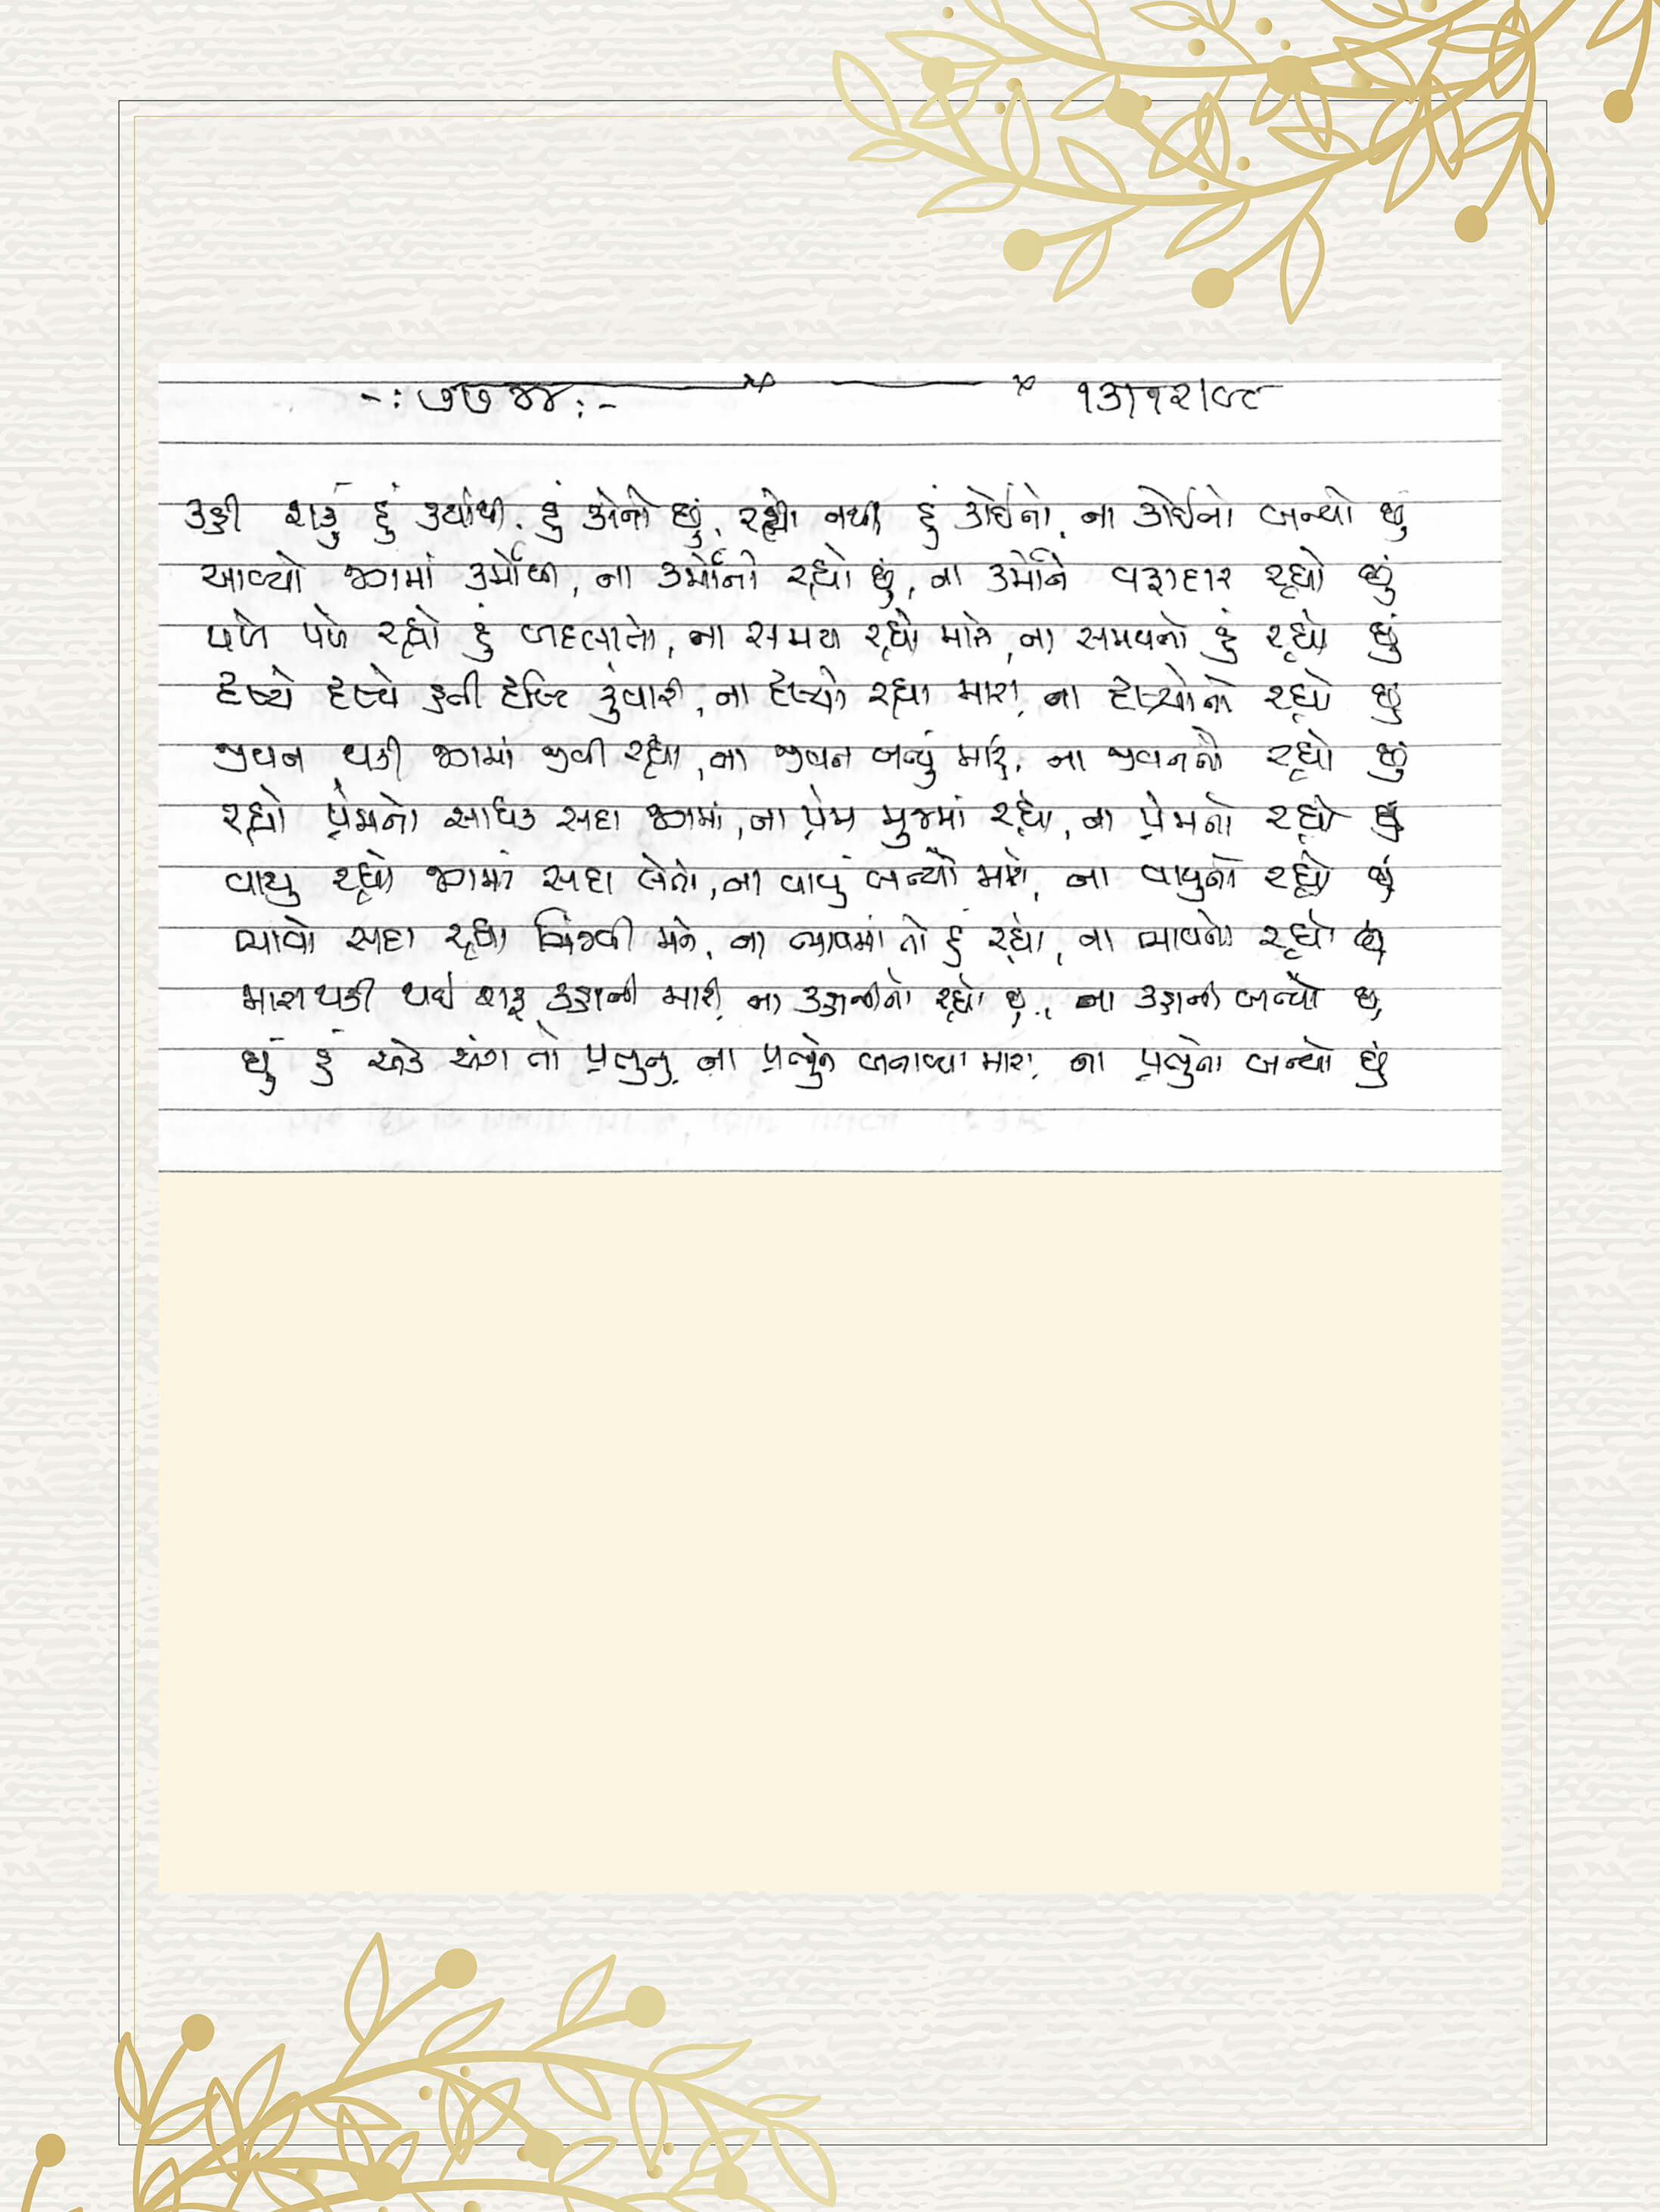 -: ૭૭૪૪ :- ૧૩/૧૨/૯૮
કહી શકું હું ક્યાંથી, હું કોનો છું, રહ્યો નથી હું કોઈનો, ના કોઈનો બન્યો છું
આવ્યો જગમાં કર્મોથી, ના કર્મોનો રહ્યો છું, ના કર્મોને વફાદાર રહ્યો છું
પળે પળે રહ્યો હું બદલાતો, ના સમય રહ્યો મારો, ના સમયનો હું રહ્યો છું
દૃષ્યે દૃષ્યે ફરી દૃષ્ટિ કુંવારી, ના દૃષ્યો રહ્યા મારા, ના દૃષ્યોનો રહ્યો છું
જીવન થકી જગમાં જીવી રહ્યો, ના જીવન બન્યું મારું, ના જીવનનો રહ્યો છું
રહ્યો પ્રેમનો સાધક સદા જગમાં, ના પ્રેમ મુજમાં રહ્યો, ના પ્રેમનો રહ્યો છું
વાયુ રહ્યો જગમાં સદા લેતો, ના વાયુ બન્યો મારો, ના વાયુનો રહ્યો છું
ભાવો સદા રહ્યા મને, ના ભાવમાં તો હું રહ્યો, ના ભાવનો રહ્યો છું
મારા થકી થઈ શરૂ કહાની મારી, ના કહાનીનો રહ્યો છું, ના કહાની બન્યો છું
છું હું એક અંગ તો પ્રભુનું, ના પ્રભુને બનાવ્યા મારા, ના પ્રભુનો બન્યો છું